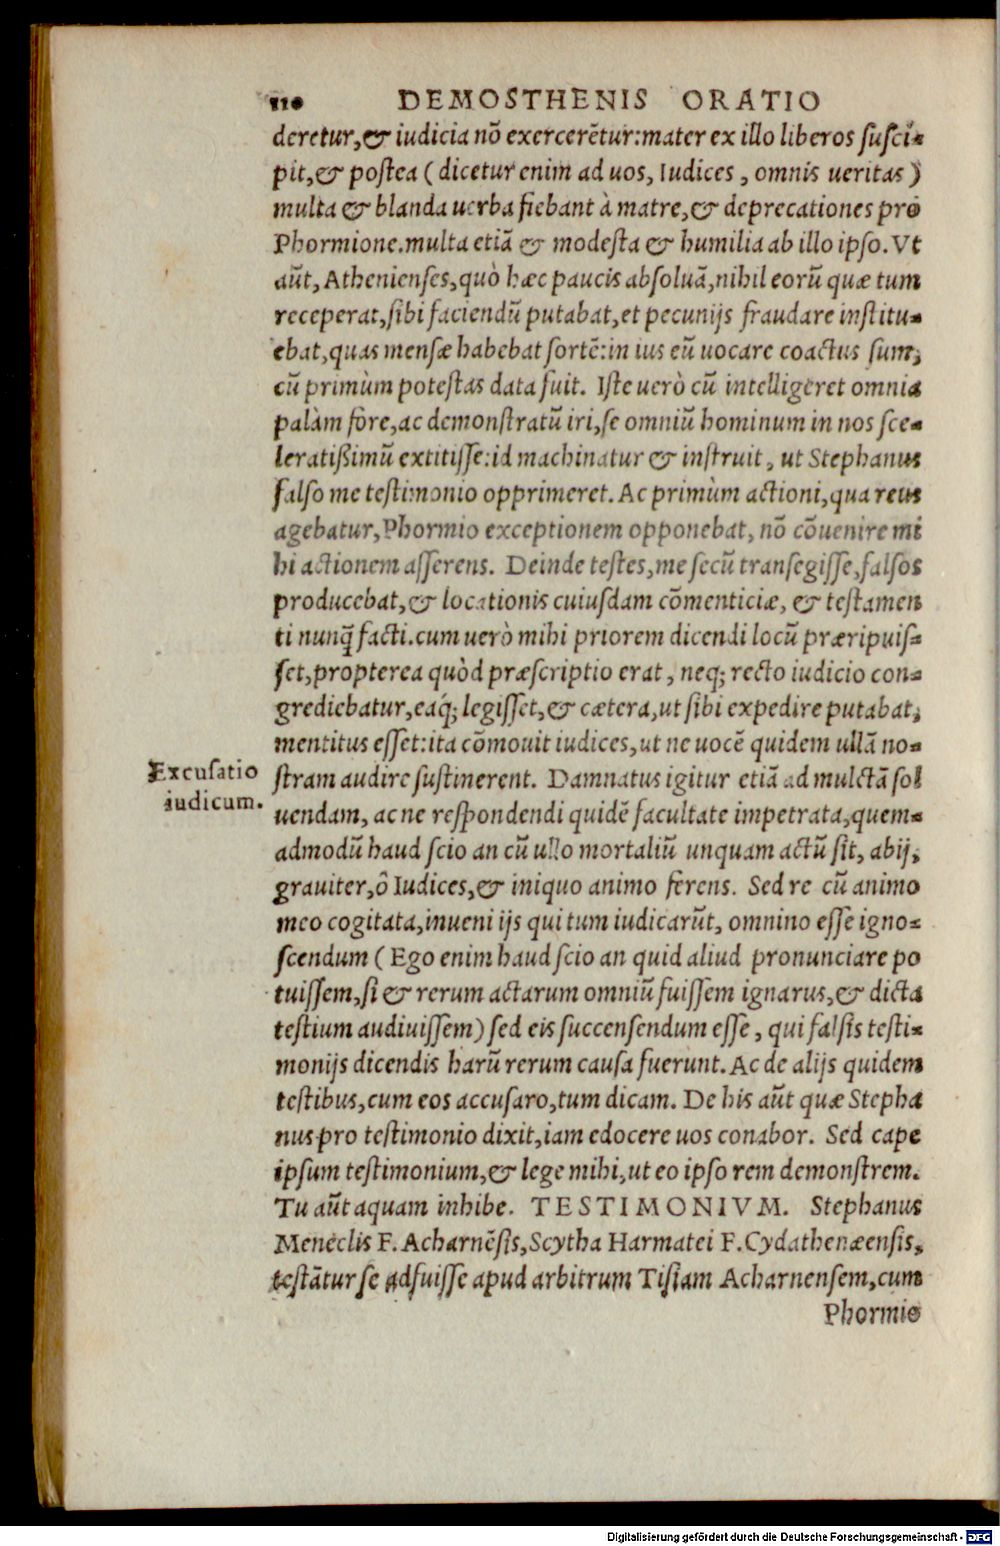 110 DEMOSTHENIS ORATIO
deretur,& iudicia nõ exercerẽtur:mater ex illo liberos susci-
pit,& postea (dicetur enim ad uos, Iudices, omnis ueritas)
multa & blanda uerba fiebant à matre,& deprecationes pro
Phormione.multa etiã & modesta & humilia ab illo ipso. Vt
aũt, Athenienses,quò hæc paucis absoluã,nihil eorũ quæ tum
receperat,sibi faciendũ putabat,et pecunijs fraudare institu-
ebat,quas mensæ habebat sortẽ:in ius eũ uocare coactus sum,
cũ primùm potestas data fuit. Iste uerò cũ intelligeret omnia
palàm fore,ac demonstratũ iri,se omniũ hominum in nos sce-
leratißimũ extitisse:id machinatur & instruit, ut Stephanus
falso me testimonio opprimeret. Ac primùm actioni,qua reus
agebatur,Phormio exceptionem opponebat, nõ cõuenire mi
hi actionem asserens. Deinde testes,me secũ transegisse,falsos
producebat,& locationis cuiusdam cõmenticiæ, & testamen
ti nunq̃ facti.cum uerò mihi priorem dicendi locũ præripuis-
set,propterea quòd præscriptio erat, neq; recto iudicio con-
grediebatur,eaq́; legisset,& cætera,ut sibi expedire putabat,
mentitus esset:ita cõmouit iudices,ut ne uocẽ quidem ullã no-
Excusatio
iudicum.
stram audire sustinerent. Damnatus igitur etiã ad mulctã sol
uendam, ac ne respondendi quidẽ facultate impetrata,quem-
admodũ haud scio an cũ ullo mortaliũ unquam actũ sit, abij,
grauiter,ô Iudices,& iniquo animo ferens. Sed re cũ animo
meo cogitata,inueni ijs qui tum iudicarũt, omnino esse igno-
scendum (Ego enim haud scio an quid aliud pronunciare po
tuissem,si & rerum actarum omniũ fuissem ignarus,& dicta
testium audiuissem) sed eis succensendum esse, qui falsis testi-
monijs dicendis harũ rerum causa fuerunt. Ac de alijs quidem
testibus,cum eos accusaro,tum dicam. De his aũt quæ Stepha
nus pro testimonio dixit,iam edocere uos conabor. Sed cape
ipsum testimonium,& lege mihi,ut eo ipso rem demonstrem.
Tu aũt aquam inhibe. TESTIMONIVM. Stephanus
Meneclis F. Acharnẽsis,Scytha Harmatei F. Cydathenæensis,
testãtur se adfuisse apud arbitrum Tisiam Acharnensem,cum
Phormio
Digitalisierung gefördert durch die Deutsche Forschungsgemeinschaft - DFG